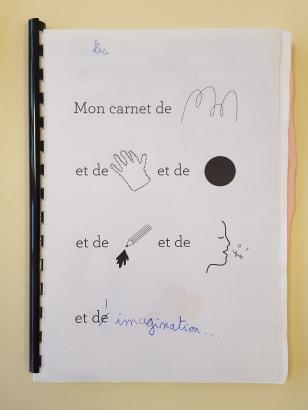 Mon carnet de
et de et de
et de et de
et d' imagination...